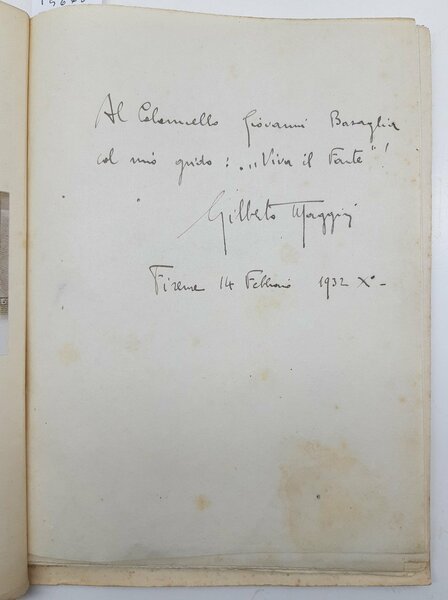 Al Colonnello Giovanni Basaglia
col mio grido: „Viva il Fante"!
Gilberto Maggini
Firenze 14 Febbraio 1932 X°-